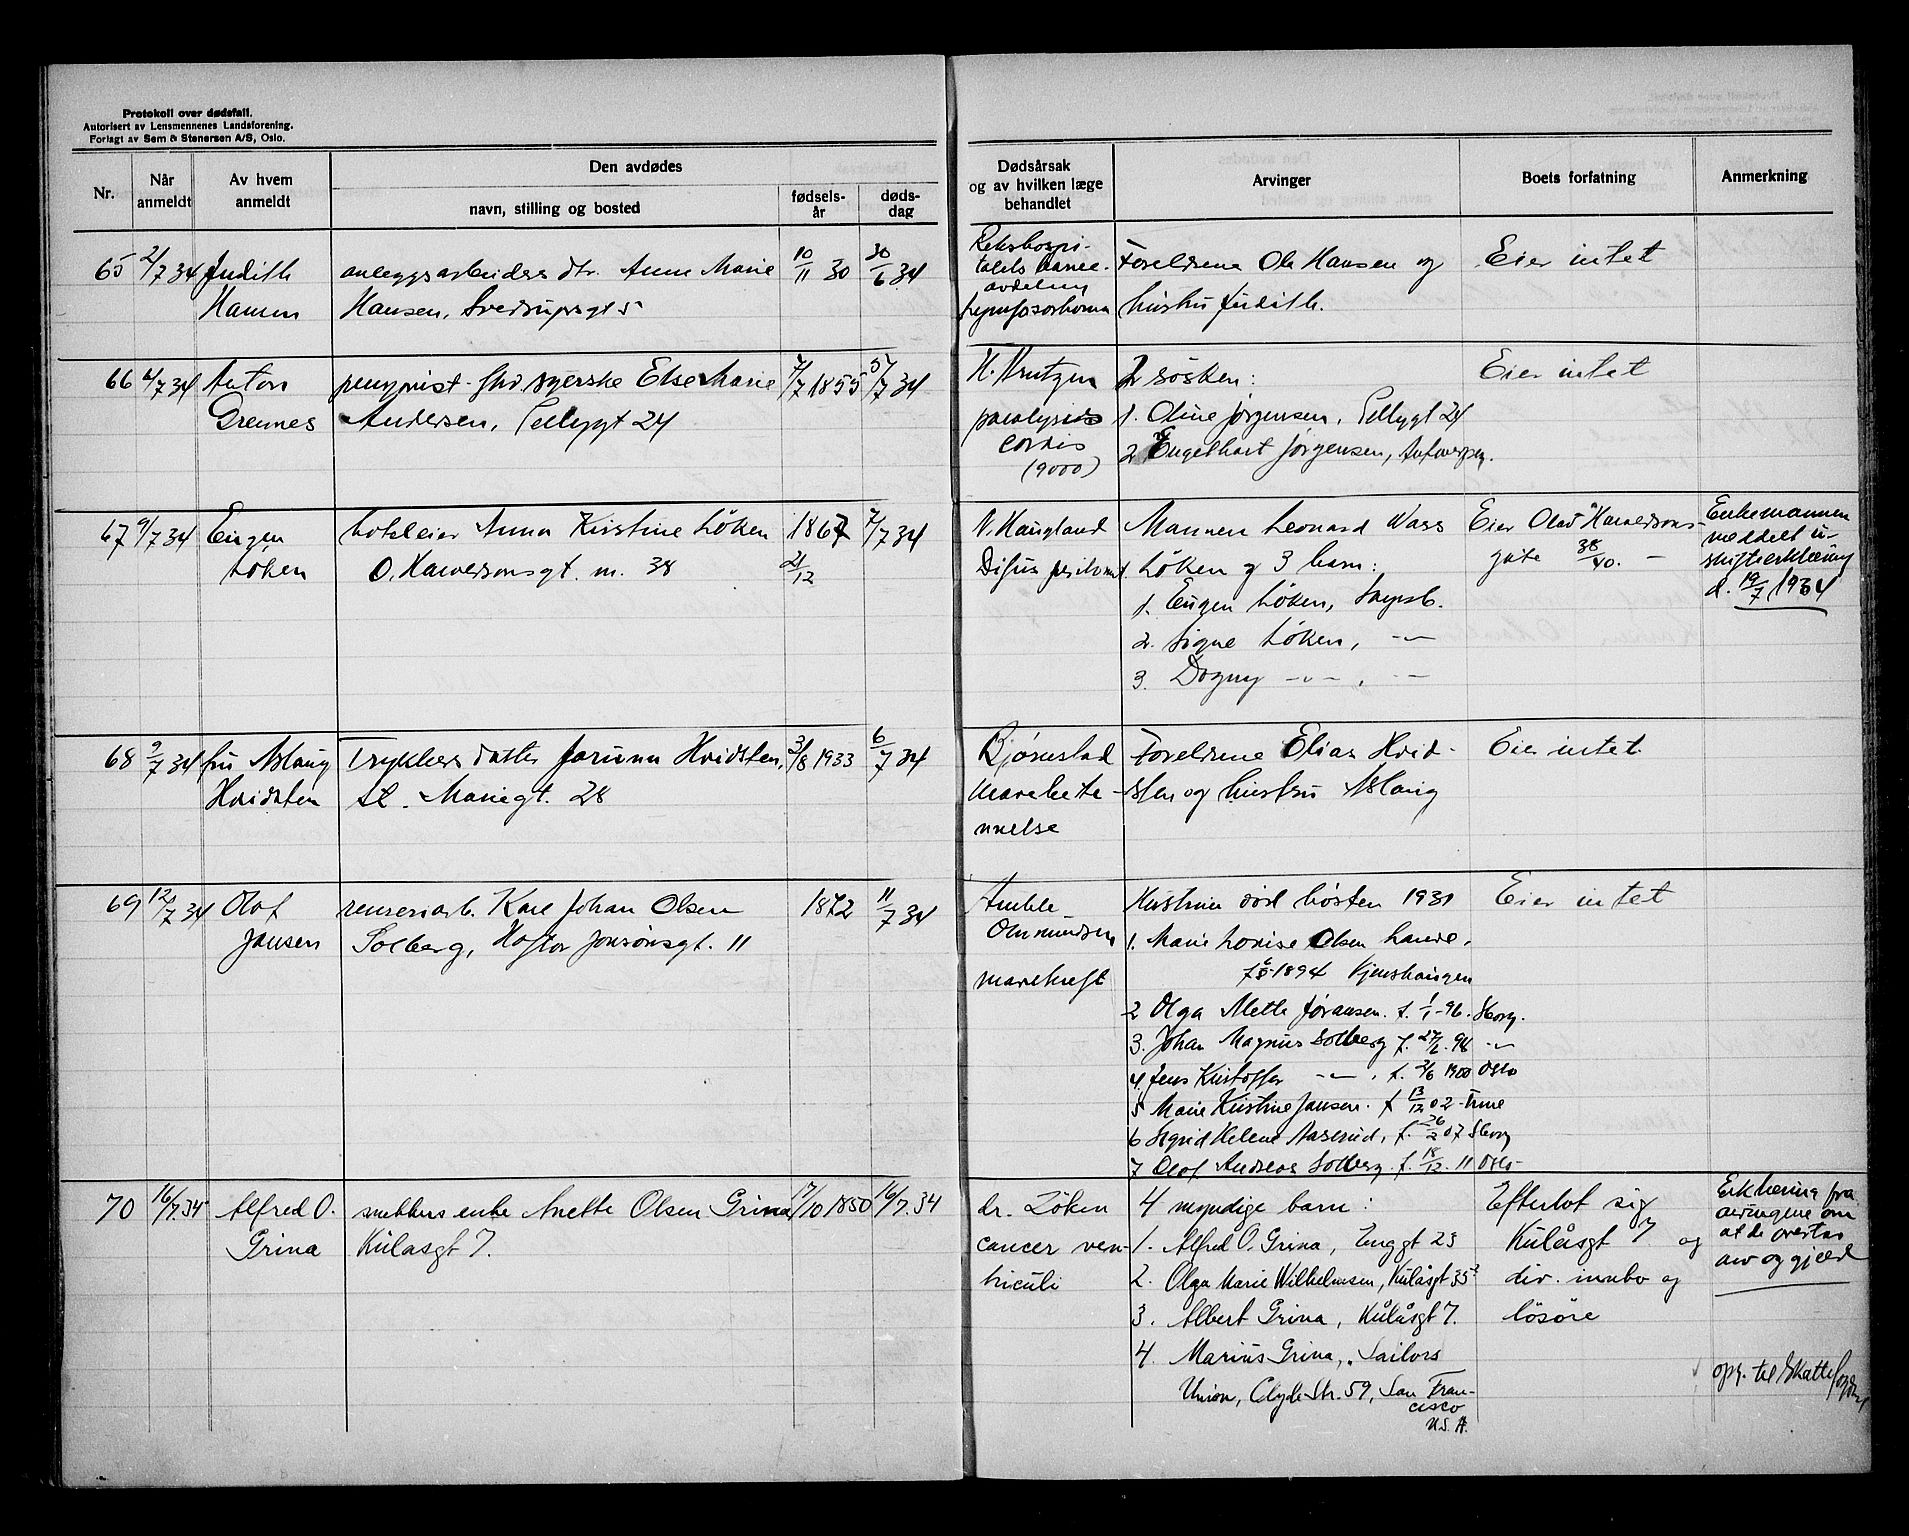 Protokoll over dødsfall.
Autorisert av Lensmennenes Landsforening.
Forlagt av Sem & Stenersen A/S, Oslo.
Nr.
Når anmeldt
Av hvem anmeldt
Den avdødes
navn, stilling og bosted
fødsels-år
døds-dag
Dødsårsak og av hvilken læge behandlet
Arvinger
Boets forfatning
Anmerkning
65 2/7 34 Judith anleggsarbeiders dtr. Anne Marie 10/11 30 30/6 34
Hansen Hansen, Sverdrupsgt 5
Rikshospi-
talets
avdeling
Foreldrene Ole Hansen og
hustru Judith.
Eier intet
66 4/7 34 Anton Else Marie 7/7 1855 5/7 34
Grennes Andersen, 24
paralysis
cordis
(9000)
2 søsken:
1. Oline Jørgensen, 24
2 Engelhart Jørgensen, Antwerpen.
Eier intet
67 9/7 34 Eugen hoteleier Anna Kristine Løken 1867 7/7 34
Løken O. Haraldsonsgt. nr. 38 21/12
N. Haugland
Mannen Leonard Wass
Løken og 3 barn:
1. Eugen Løken, Sarpsb.
2. Signe Løken, -"-
3. Dagny -"- , -"-
Eier Olav Haraldsons-
gate 38/40. -
Enkemannen
meddelt u-
skifteerklæring
d. 19/7 1934
68 9/7 34 fru Aslaug Trykkers datter Jorunn Hvidsten, 3/8 1933 6/7 34
Hvidsten St. Mariegt. 28
Bjørnestad
Foreldrene Elias Hvid-
sten og hustru Aslaug
Eier intet.
69 12/7 34 Olaf Karl Johan Olsen 1872 11/7 34
Jansen Solberg, 11
Amble
Ommundsen
mavekreft
Hustruen død høsten 1931
1. Marie Lovise Olsen
1894
2 Olga Mette Jøransen. f. 1/1-96. Sborg.
3. Johan Magnus Solberg f. 27/6. 98 -"-
4. Jens Kristoffer -"- , f. 2/6 1900 Oslo
5 Marie Kristine Jansen. f 13/12 02 Tune
6 Sigrid Helene Aaserud, f. 26/2 07 Sborg
7 Olof Andreas Solberg. f. 18/12. 11 Oslo-
Eier intet
70 16/7.34 Alfred O. snekkers enke Anette Olsen Grina 17/10 1850 16/7.34
Grina Kulåsgt 7.
dr. Løken
cancer ven-
triculi
4 myndige barn:
1. Alfred O. Grina, Enggt 23
2. Olga Marie Wilhelmsen, Kulåsgt 35
3. Albert Grina, Kulåsgt 7.
4. Marius Grina, Sailors
Union, Clyde Str. 59, San Fran-
cisco
U.S.A.
Efterlot sig
Kulåsgt 7 og
div. innbo og
løsøre
Erklæring fra
arvingene om
at de overtar
arv og gjæld
opg. til skattefogden